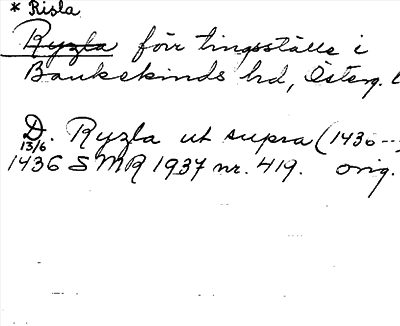 * Risla
Ryzla förr tingsställe i
Bankekinds hd, Österg. l
D. Ryzla ut supra (1436 --
13/6
1436 SMR 1937 nr. 419. orig.